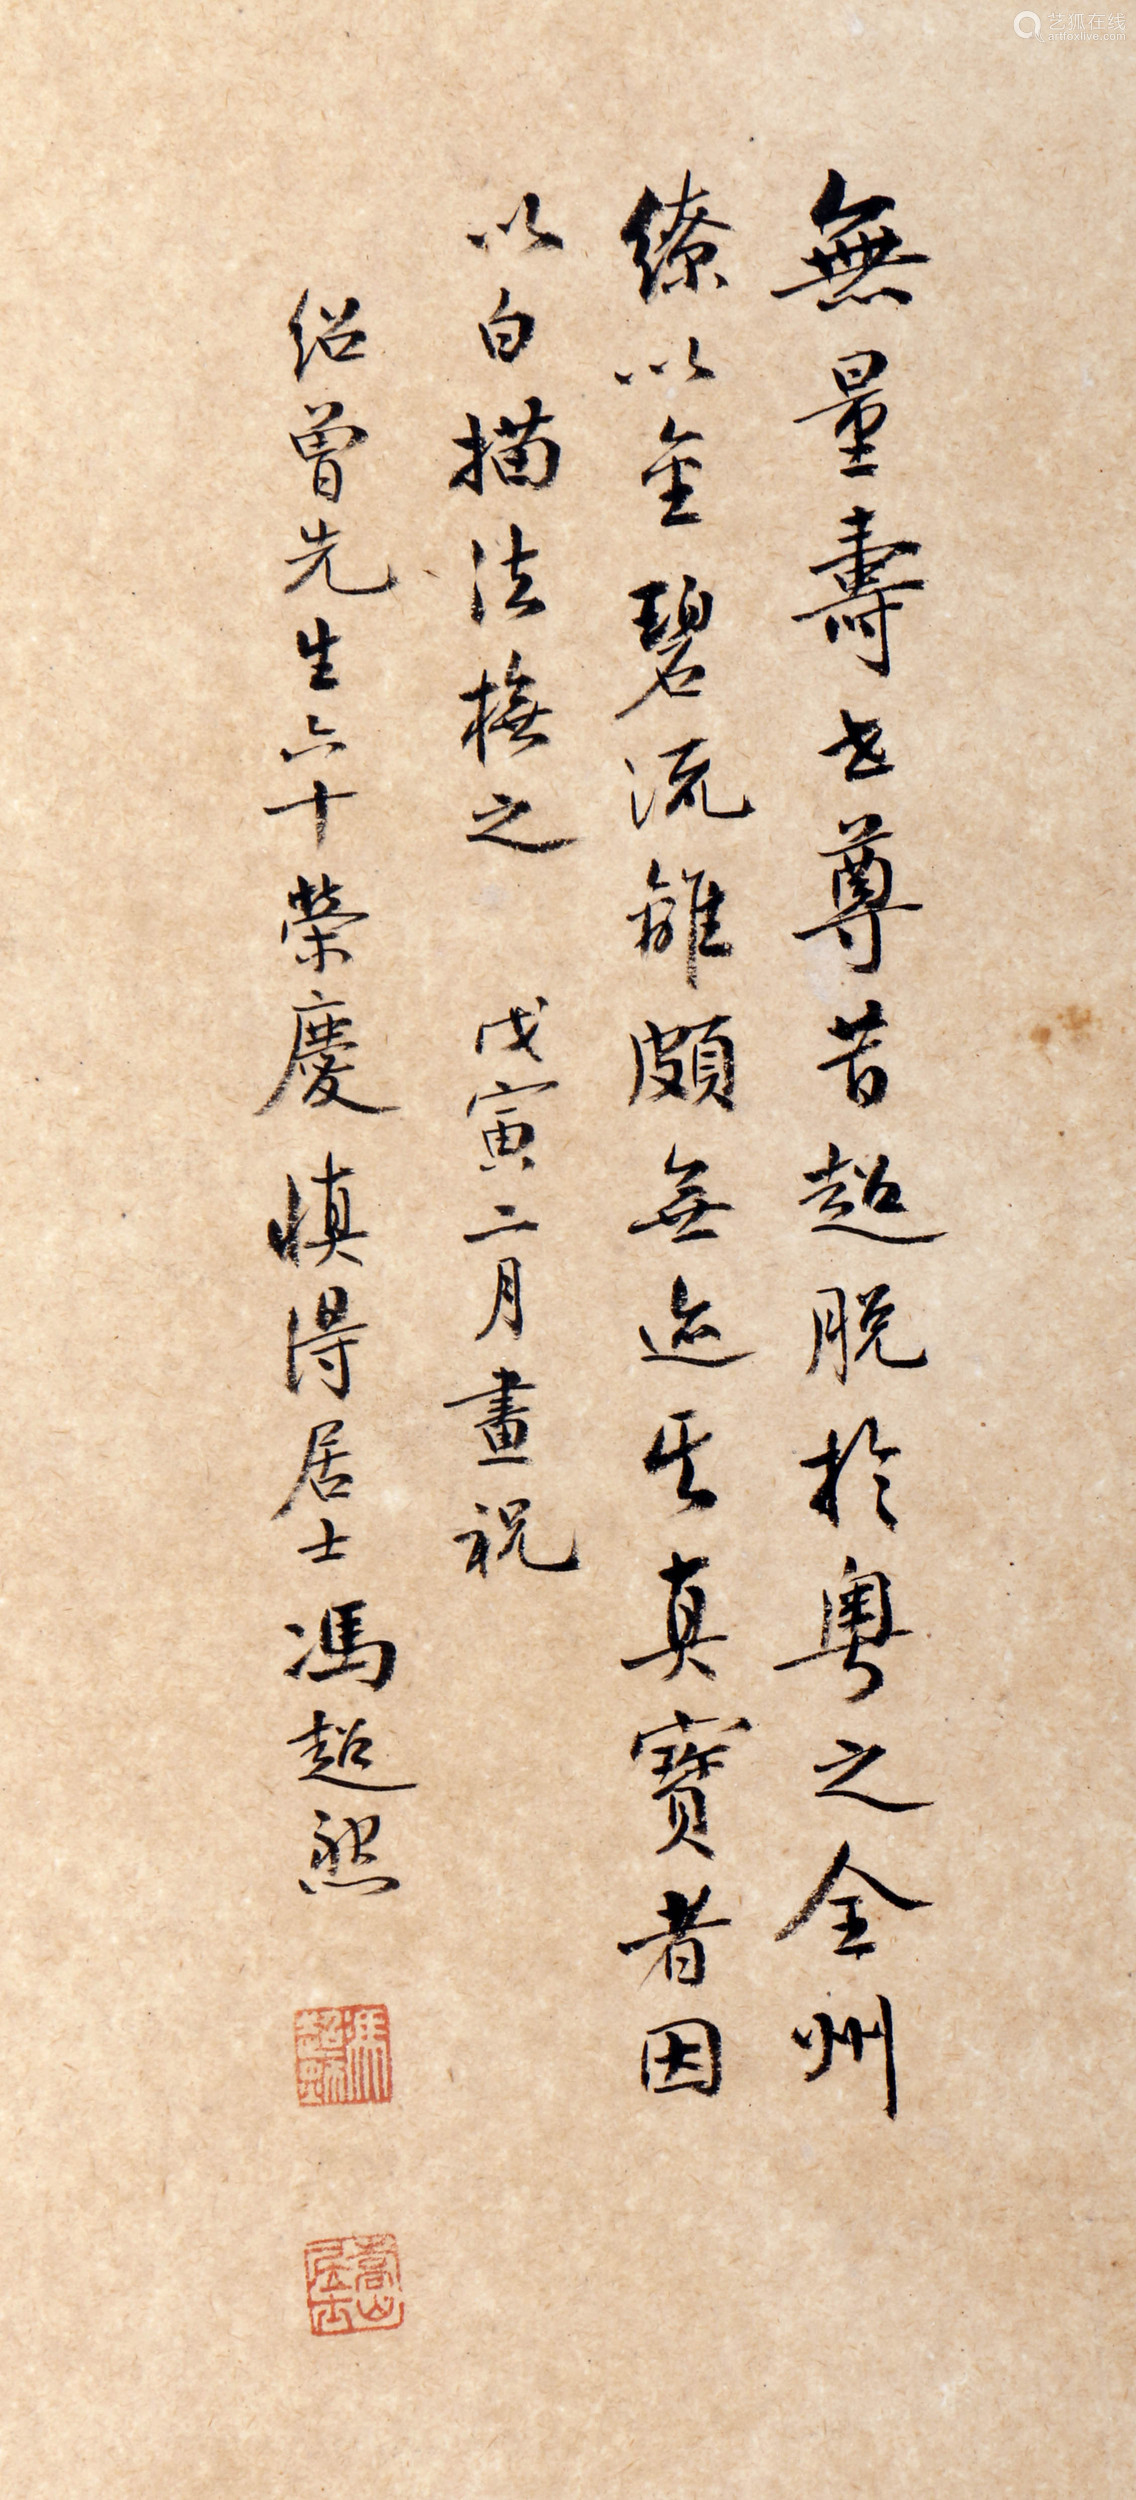 無量壽世尊昔超脱於粤之全州
繚以金碧流離頗無迹其真寶者因
以白描法橅之 戊寅二月畫祝
紹曾先生六十榮慶 慎得居士馮超然
馮超然
嵩山居士
艺狐在线
artfoxlive.com